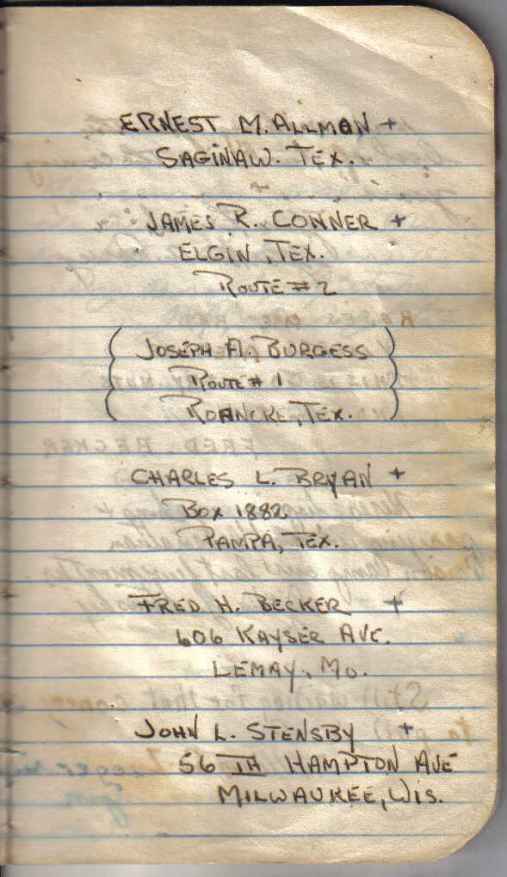 ERNEST M. ALLMON +
SAGINAW. TEX.
JAMES R. CONNER +
ELGIN, TEX.
ROUTE # 2
JOSEPH A. BURGESS
ROUTE # 1
ROANOKE, TEX.
CHARLES L. BRYAN +
BOX 1882.
PAMPA, TEX.
FRED H. BECKER +
606 KAYSER AVE.
LEMAY, MO.
JOHN L. STENSBY +
56 TH HAMPTON AVE
MILWAUKEE, WIS.
FRED BECKER